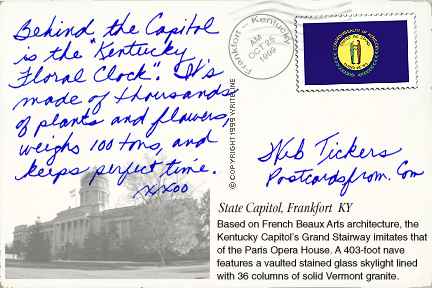 Behind the Capitol
is the "Kentucky
Floral Clock". It's
made of thousands
of plants and flowers,
weighs 100 tons, and
keeps perfect time.
xxoo
Frankfort - Kentucky
AM
OCT 25
1999
© COPYRIGHT 1999 WRITELINE
Web Tickers
Postcardsfrom.Com
State Capitol, Frankfort KY
Based on French Beaux Arts architecture, the
Kentucky Capitol's Grand Stairway imitates that
of the Paris Opera House. A 403-foot nave
features a vaulted stained glass skylight lined
with 36 columns of solid Vermont granite.